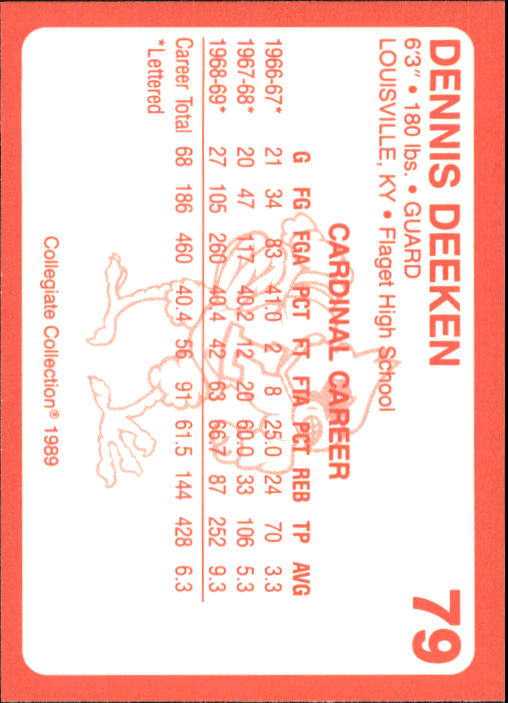 DENNIS DEEKEN 79
6'3" • 180 lbs. • GUARD
LOUISVILLE, KY • Flaget High School
CARDINAL CAREER
G FG FGA PCT FT FTA PCT REB TP AVG
1966-67* 21 34 83 41.0 2 8 25.0 24 70 3.3
1967-68* 20 47 117 40.2 12 20 60.0 33 106 5.3
1968-69* 27 105 260 40.4 42 63 66.7 87 252 9.3
Career Total 68 186 460 40.4 56 91 61.5 144 428 6.3
*Lettered
Collegiate Collection® 1989